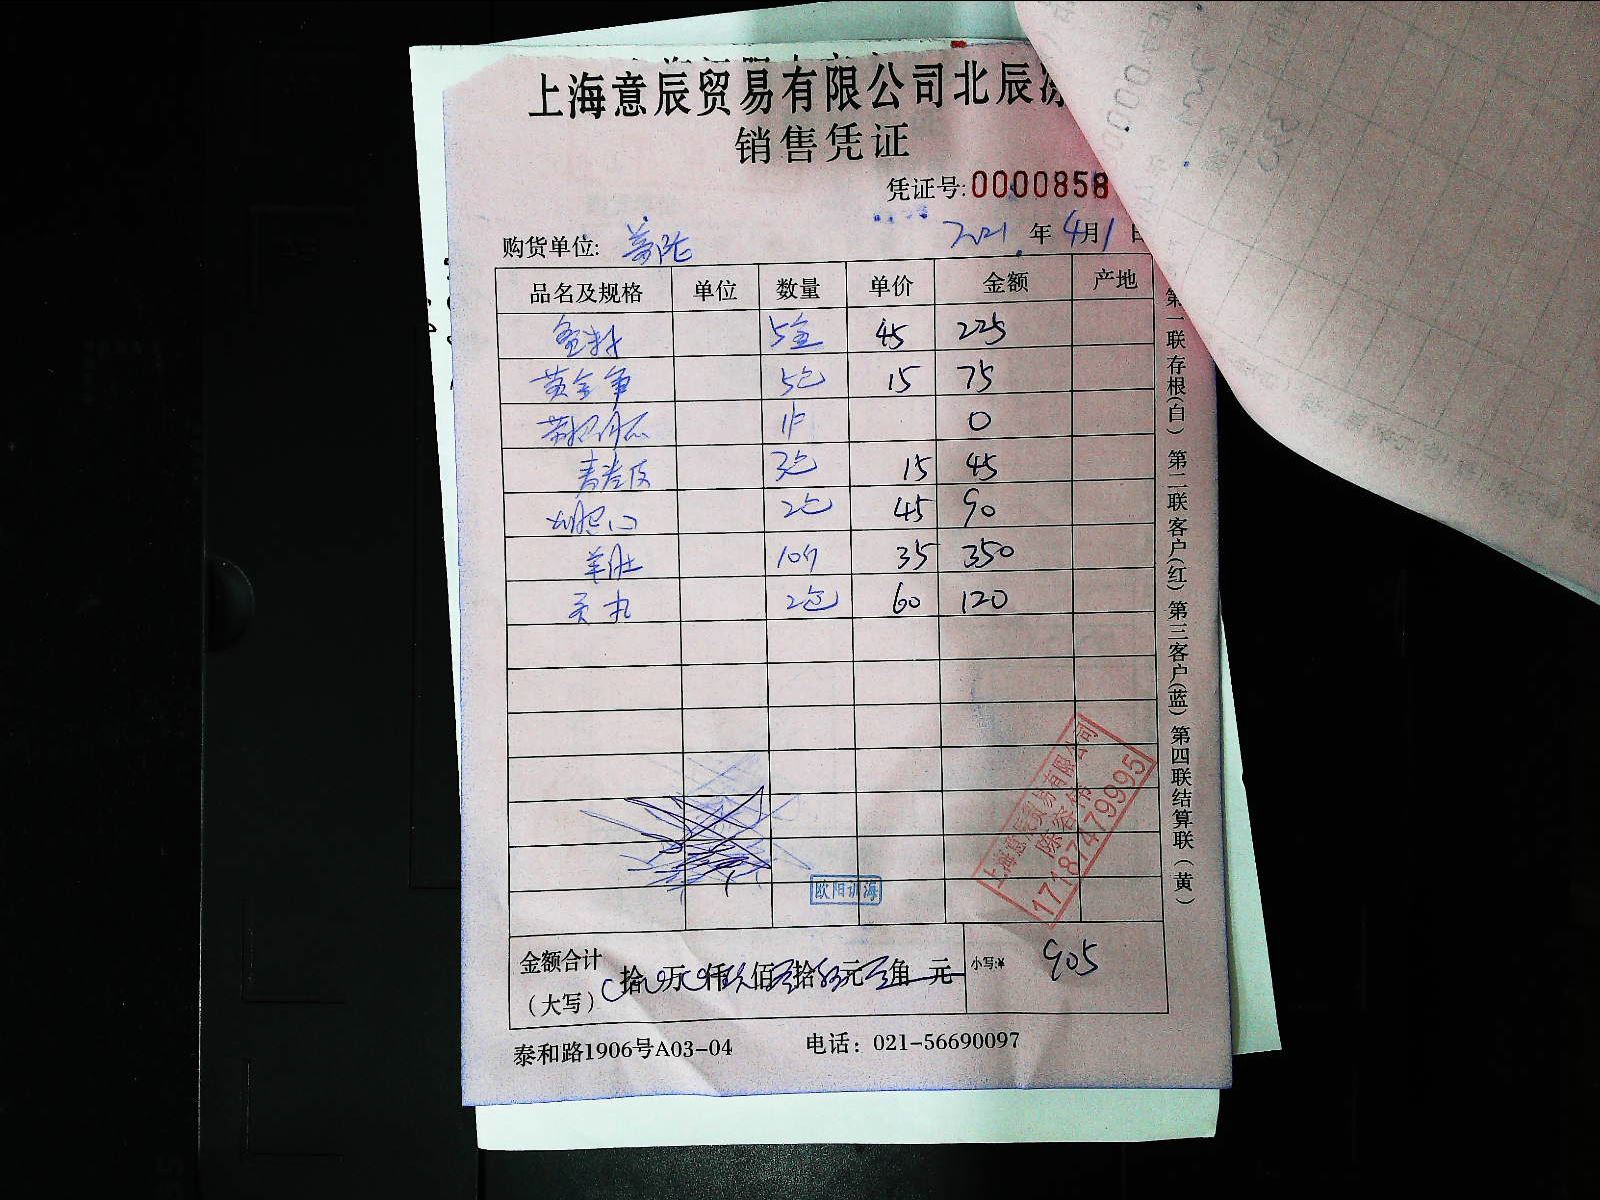 上海意辰贸易有限公司北辰冻
销售凭证
凭证号:0000858
购货单位:
2021年4月1日
品名及规格 单位 数量 单价 金额 产地
5盒 45 225
黄金 5包 15 75
1件 0
3包 15 45
2包 45 90
羊肚 10个 35 350
丸 2包 60 120
上海意辰贸易有限公司
陈容伟
17187479995
欧阳训海
金额合计
（大写） 拾 万 仟 玖 佰 零 拾 伍 元 零 角 元 小写:¥ 905
泰和路1906号A03-04 电话：021-56690097
第一联存根(白) 第二联客户(红) 第三客户(蓝) 第四联结算联(黄)